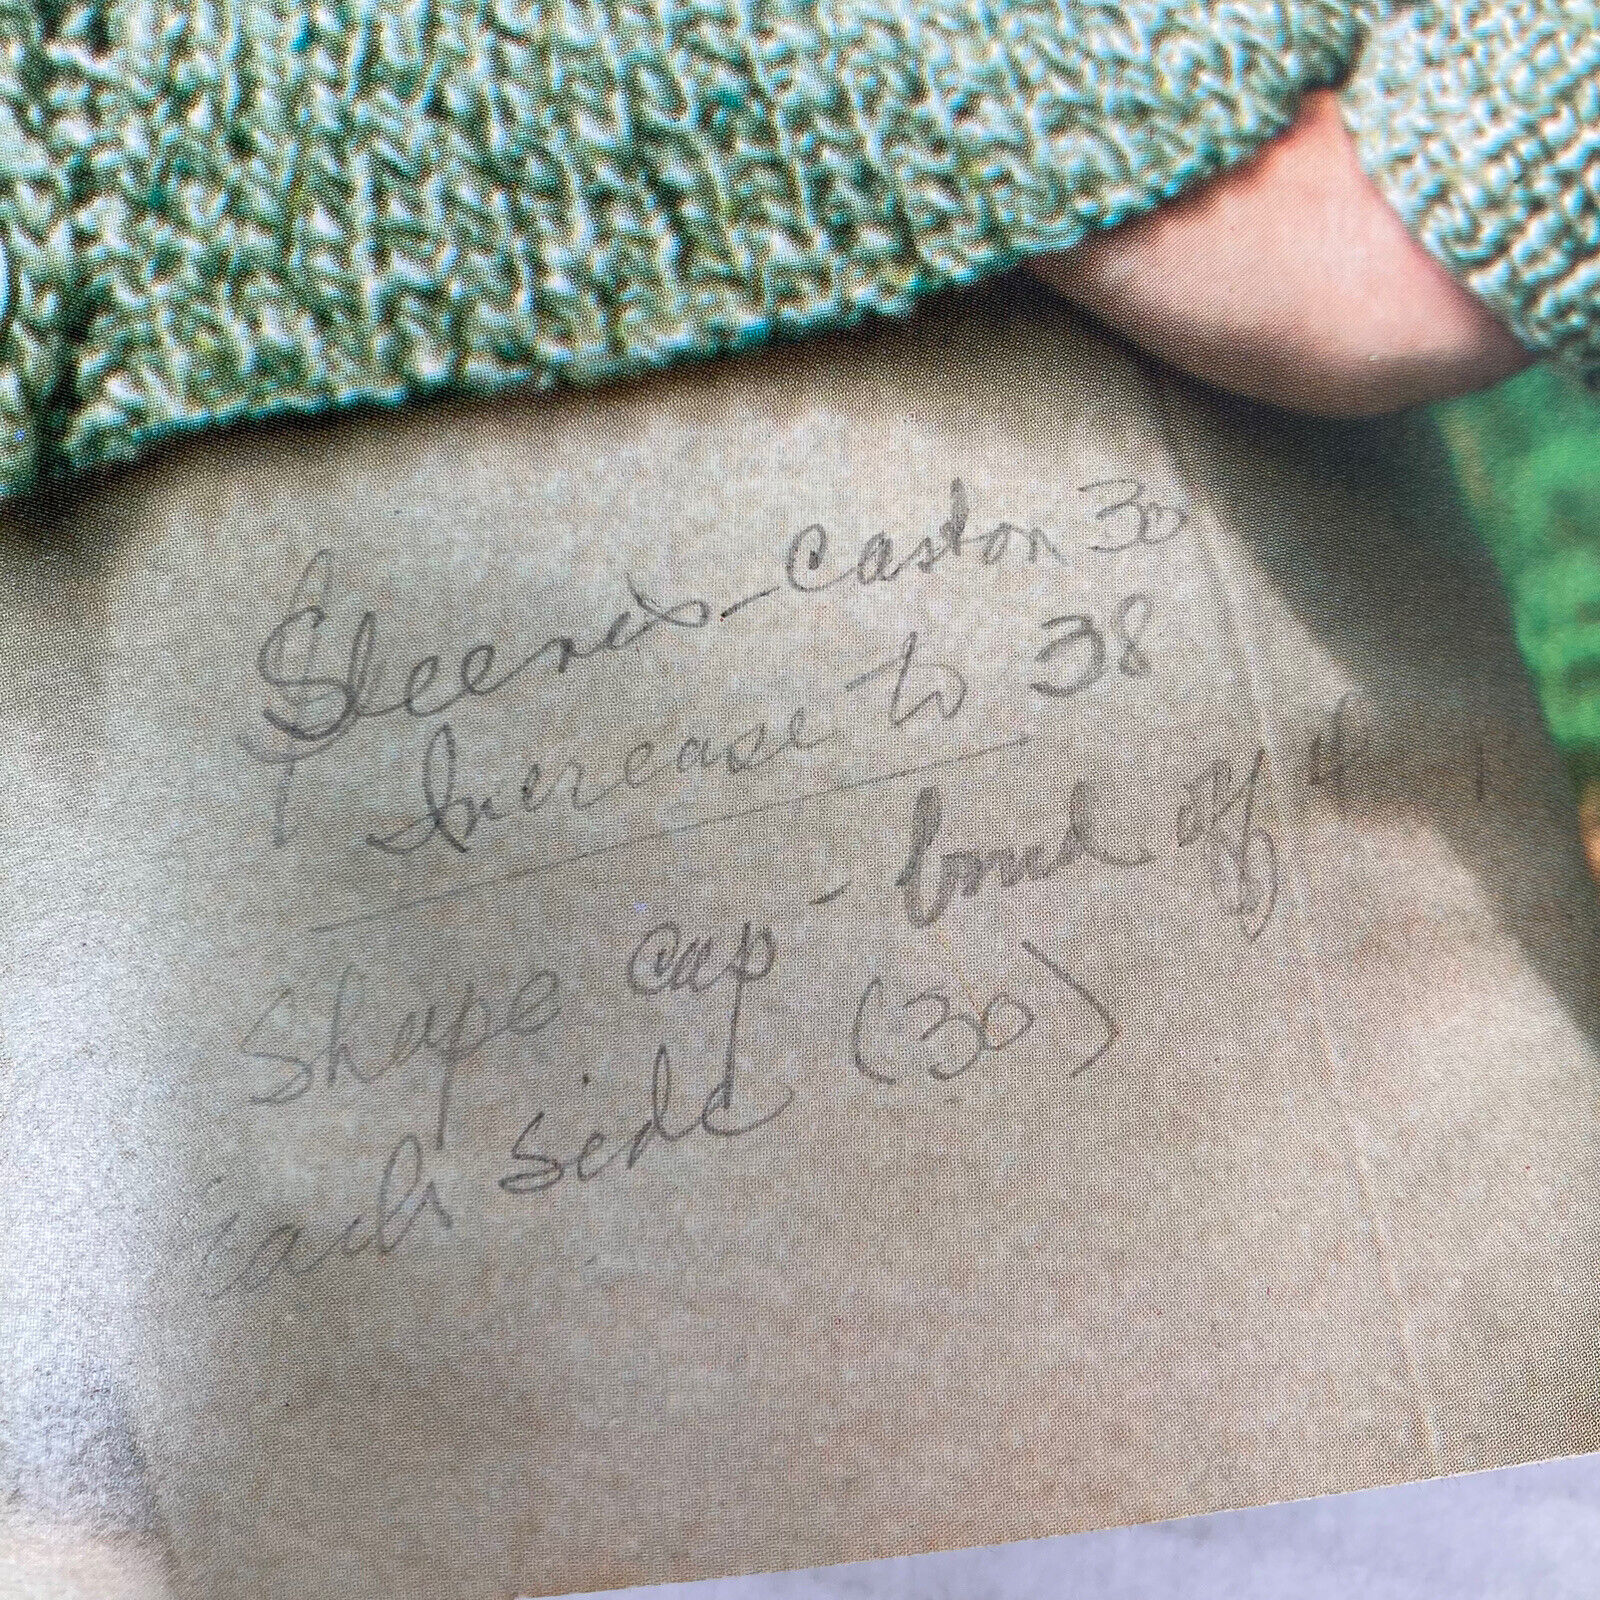 Sleeves - Caston 30
Increase to 38
Shape cap - bind off 4
each side (30)